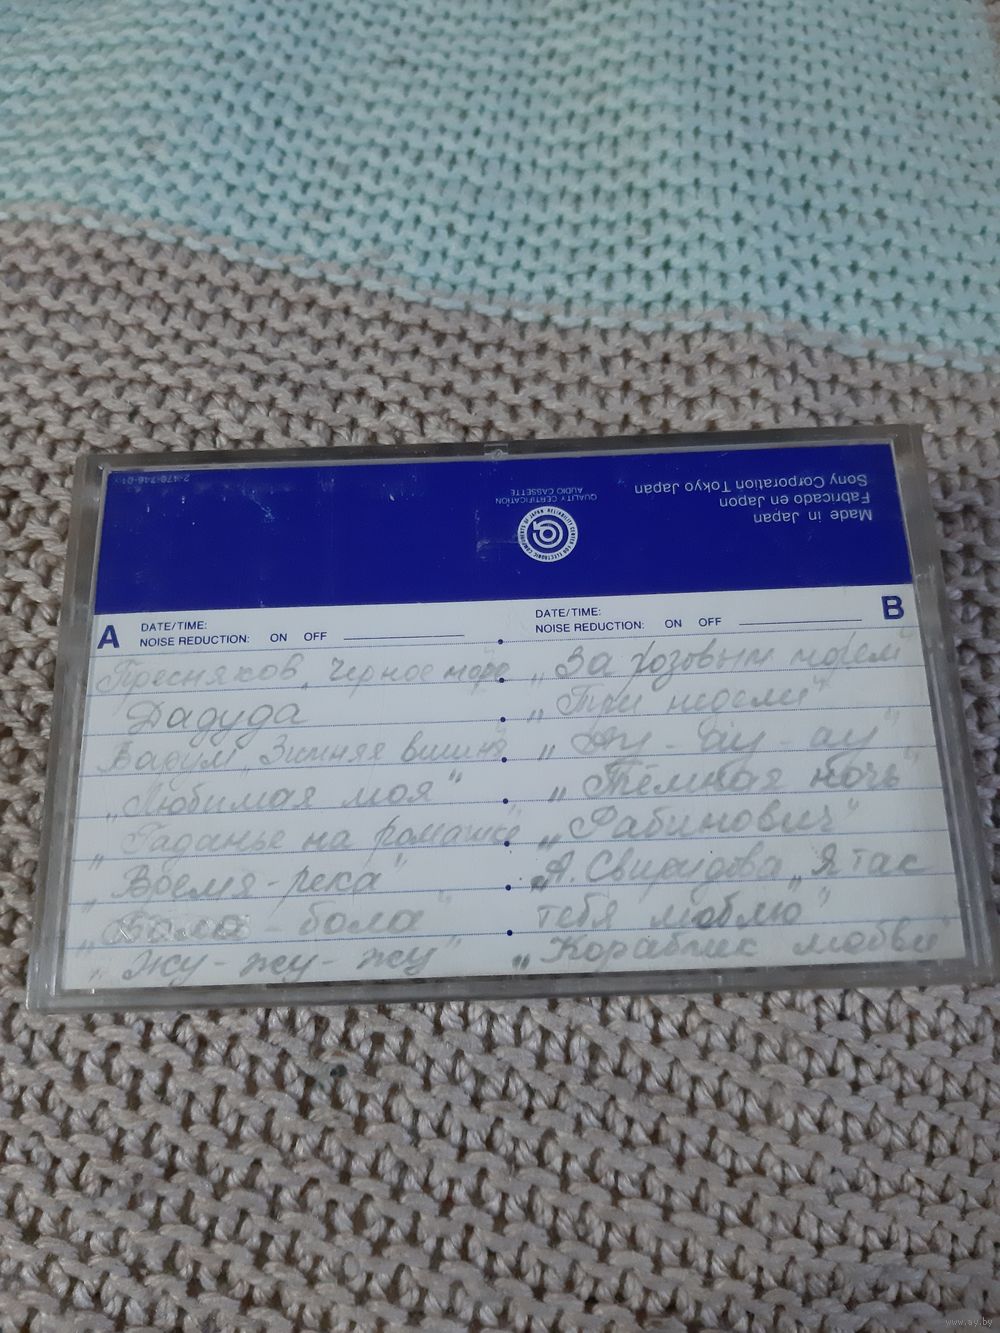 2-476-746-01
QUALITY CERTIFICATION
AUDIO CASSETTE
RELIABILITY CENTER FOR ELECTRONIC COMPONENTS OF JAPAN
Made in Japan
Fabricado en Japon
Sony Corporation Tokyo Japan
A
DATE/TIME:
NOISE REDUCTION: ON OFF
Пресняков „Черное море"
Дадуда
Вадум „Зимняя вишня"
„Любимая моя"
„Гаданье на ромашке"
„Время-река"
„Бола-бола"
„Жу-жу-жу"
DATE/TIME:
NOISE REDUCTION: ON OFF
B
„За розовым морем"
„Три недели"
„Ау-ау-ау"
„Тёмная ночь"
„Рабинович"
А. Свиридова „Я так
тебя люблю"
„Кораблик любви"
www.ay.by